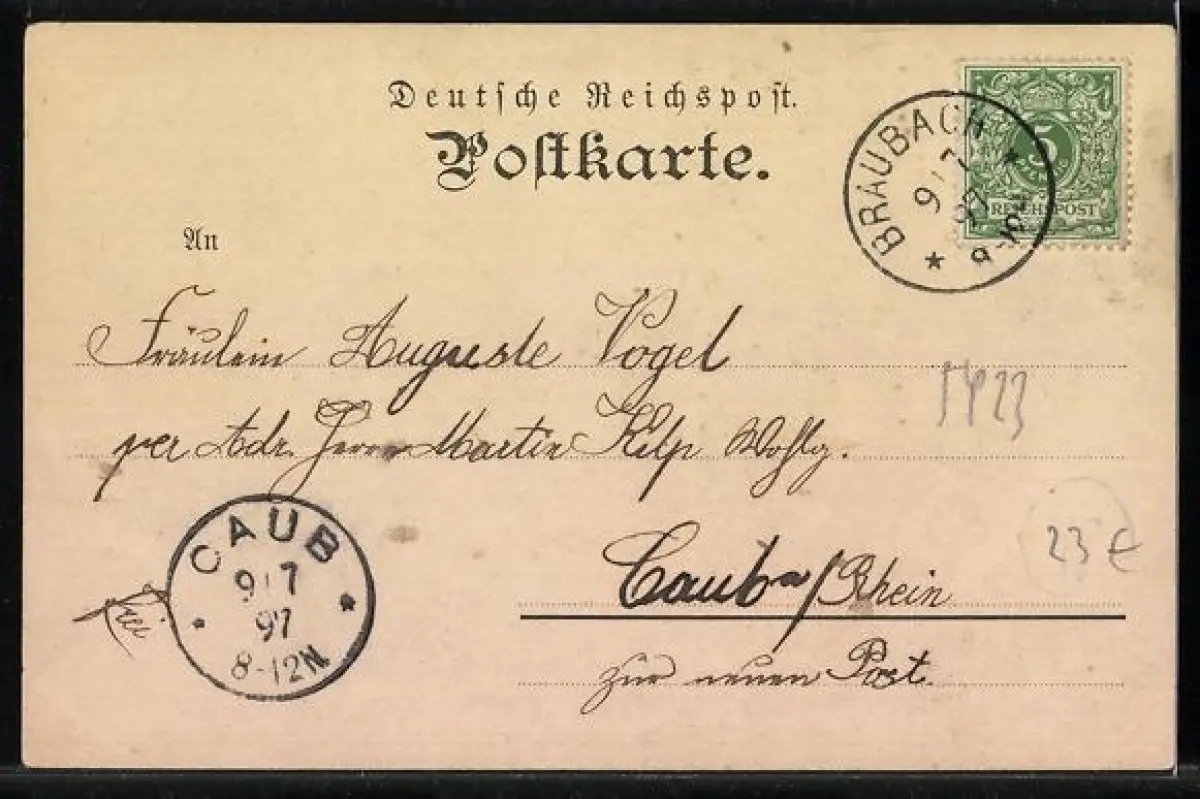 Deutsche Reichspost.
Postkarte.
BRAUBACH
9/7
97
5
REICHSPOST
An
Fräulein Auguste Vogel
per Adr. Herrn Martin Kelp Wohlg.
CAUB
9/7
97
8-12N
Caub a/Rhein
frei
zur neuen Post.
23 €